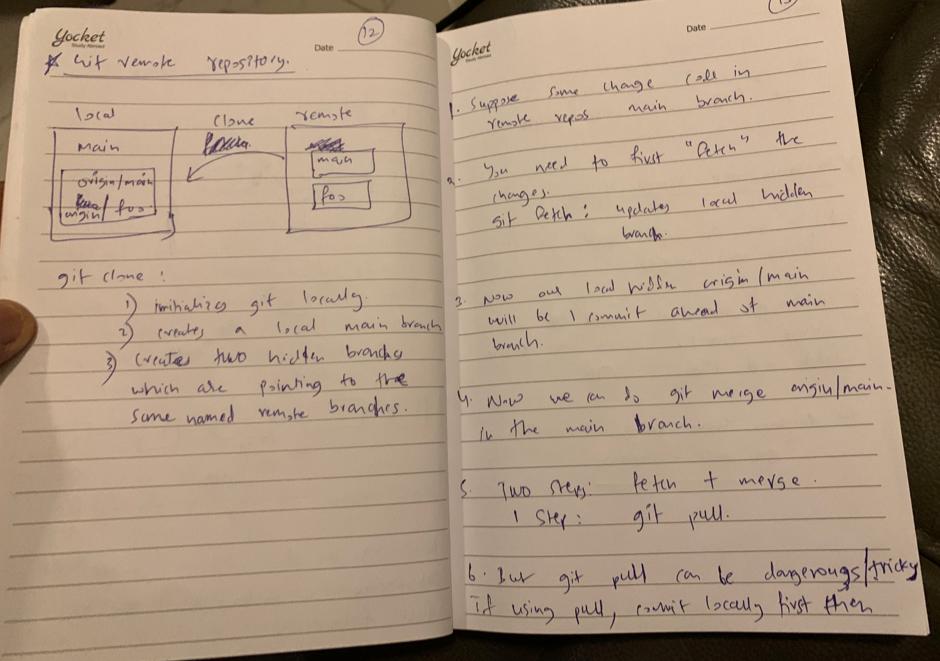 Yocket
Study Abroad
Date
12
* Git remote repository.
local
clone
remote
main
origin/main
origin/ foo
main
foo
git clone :
1) initializes git locally.
2) creates a local main branch
3) creates two hidden branches
which are pointing to the
same named remote branches.
Yocket
Date
13
1. Suppose some change code in
remote repos main branch.
2. You need to first "fetch" the
changes.
git fetch : updates local hidden
branch.
3. Now our local hidden origin/main
will be 1 commit ahead of main
branch.
4. Now we can do git merge origin/main.
in the main branch.
5. Two steps: fetch + merge.
1 step: git pull.
6. But git pull can be dangerougs/tricky
if using pull, commit locally first then